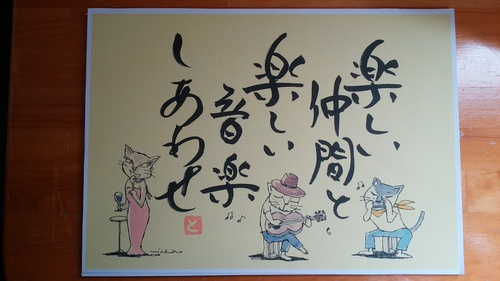 楽しい
仲間と
楽しい
音楽
しあわせ
と